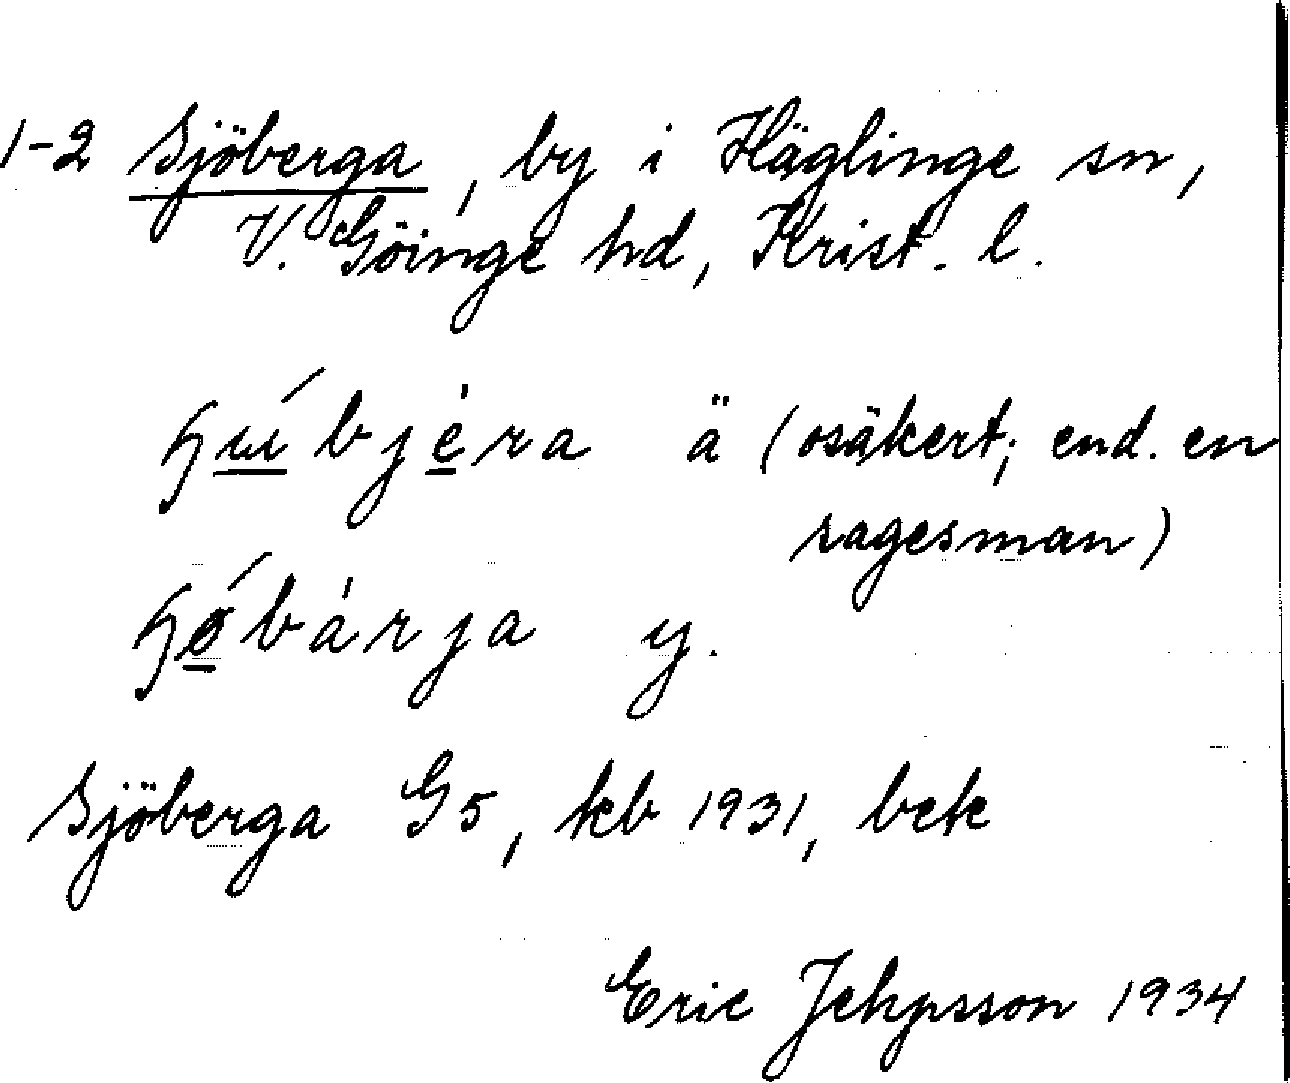 1-2 Sjöberga, by i Häglinge sn,
V. Göinge hd, Krist. l.
ɧúbjèra ä (osäkert; end. en
sagesman)
ɧǿbàrja y.
Sjöberga G5, kb 1931, bek
Eric Jehpsson 1934